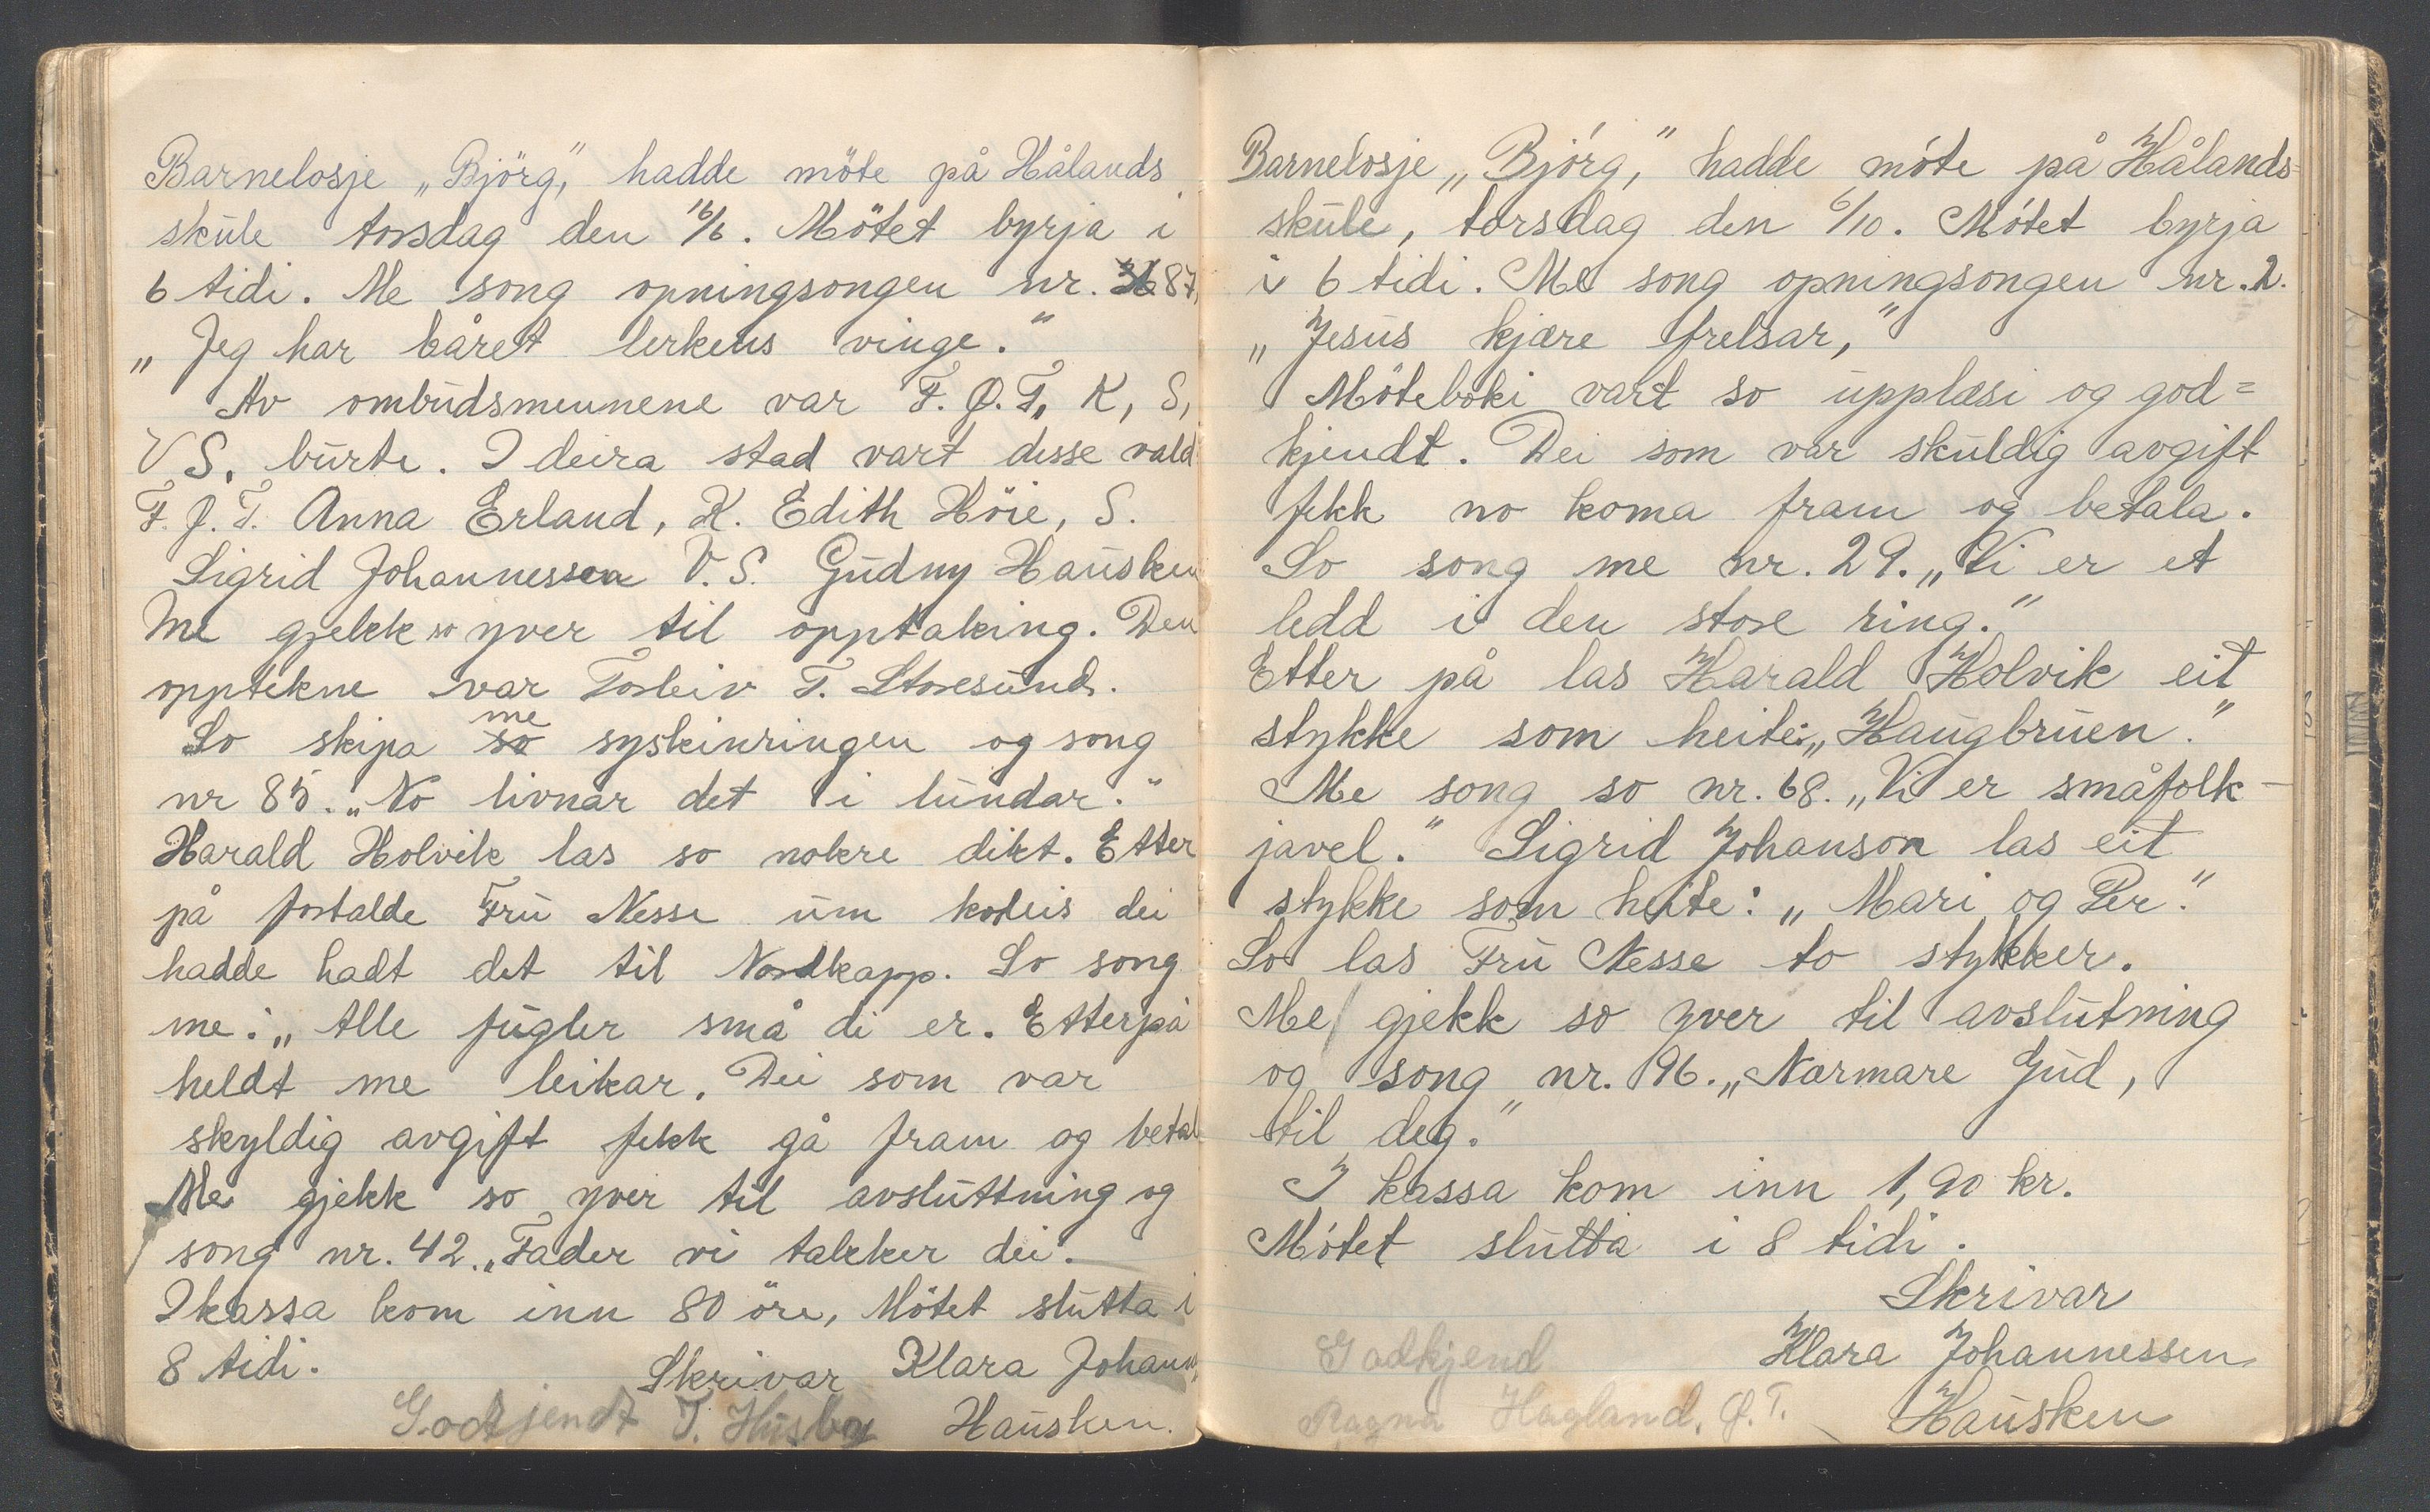 Barnelosje „Björg," hadde möte på Hålands
skule torsdag den 16/6. Mötet byrja i
6 tidi. Me song opningsongen nr. 87,
„Jeg har båret lerkens vinge."
Av ombudsmennene var F.Ø.T, K, S,
V S. burte. I deira stad vart desse vald
F.J.T. Anna Erland, K. Edith Höie, S.
Sigrid Johannessen V.S. Gudny Hausken
Me gjekk so yver til opptaking. Den
opptekne var Torleiv T. Storesund.
So skipa me syskinringen og song
nr 85. „No livnar det i lundar."
Harald Holvik las so nokre dikt. Etter
på fortalde Fru Nesse um korleis dei
hadde hadt det til Nordkapp. So song
me: „Alle fugler små di er. Etterpå
heldt me leikar. Dei som var
skyldig avgift fekk gå fram og betal
Me gjekk so yver til avsluttning og
song nr. 42. „Fader vi takker dei.
I kassa kom inn 80 öre, Mötet slutta i
8 tidi. Skrivar Klara Johann
Godkjendt T. Husby Hausken.
Barnelosje „Björg," hadde möte på Hålands-
skule, torsdag den 6/10. Mötet byrja
i 6 tidi. Me song opningsongen nr. 2.
„Jesus kjære frelsar,"
Möteboki vart so upplæsi og god=
kjendt. Dei som var skuldig avgift
fekk no koma fram og betala.
So song me nr. 29. „Vi er et
ledd i den store ring."
Etter på las Harald Holvik eit
stykke som heite: „Haugbruen."
Me song so nr. 68. „Vi er småfolk-
javel." Sigrid Johanson las eit
stykke som heite: „Mari og Per."
So las Fru Nesse to stykker.
Me gjekk so yver til avslutning
og song nr. 96. „Nærmare Gud,
til deg."
I kassa kom inn 1,90 kr.
Mötet slutta i 8 tidi.
Skrivar
Godkjend Klara Johannessen
Ragna Hagland. Ø.T. Hausken